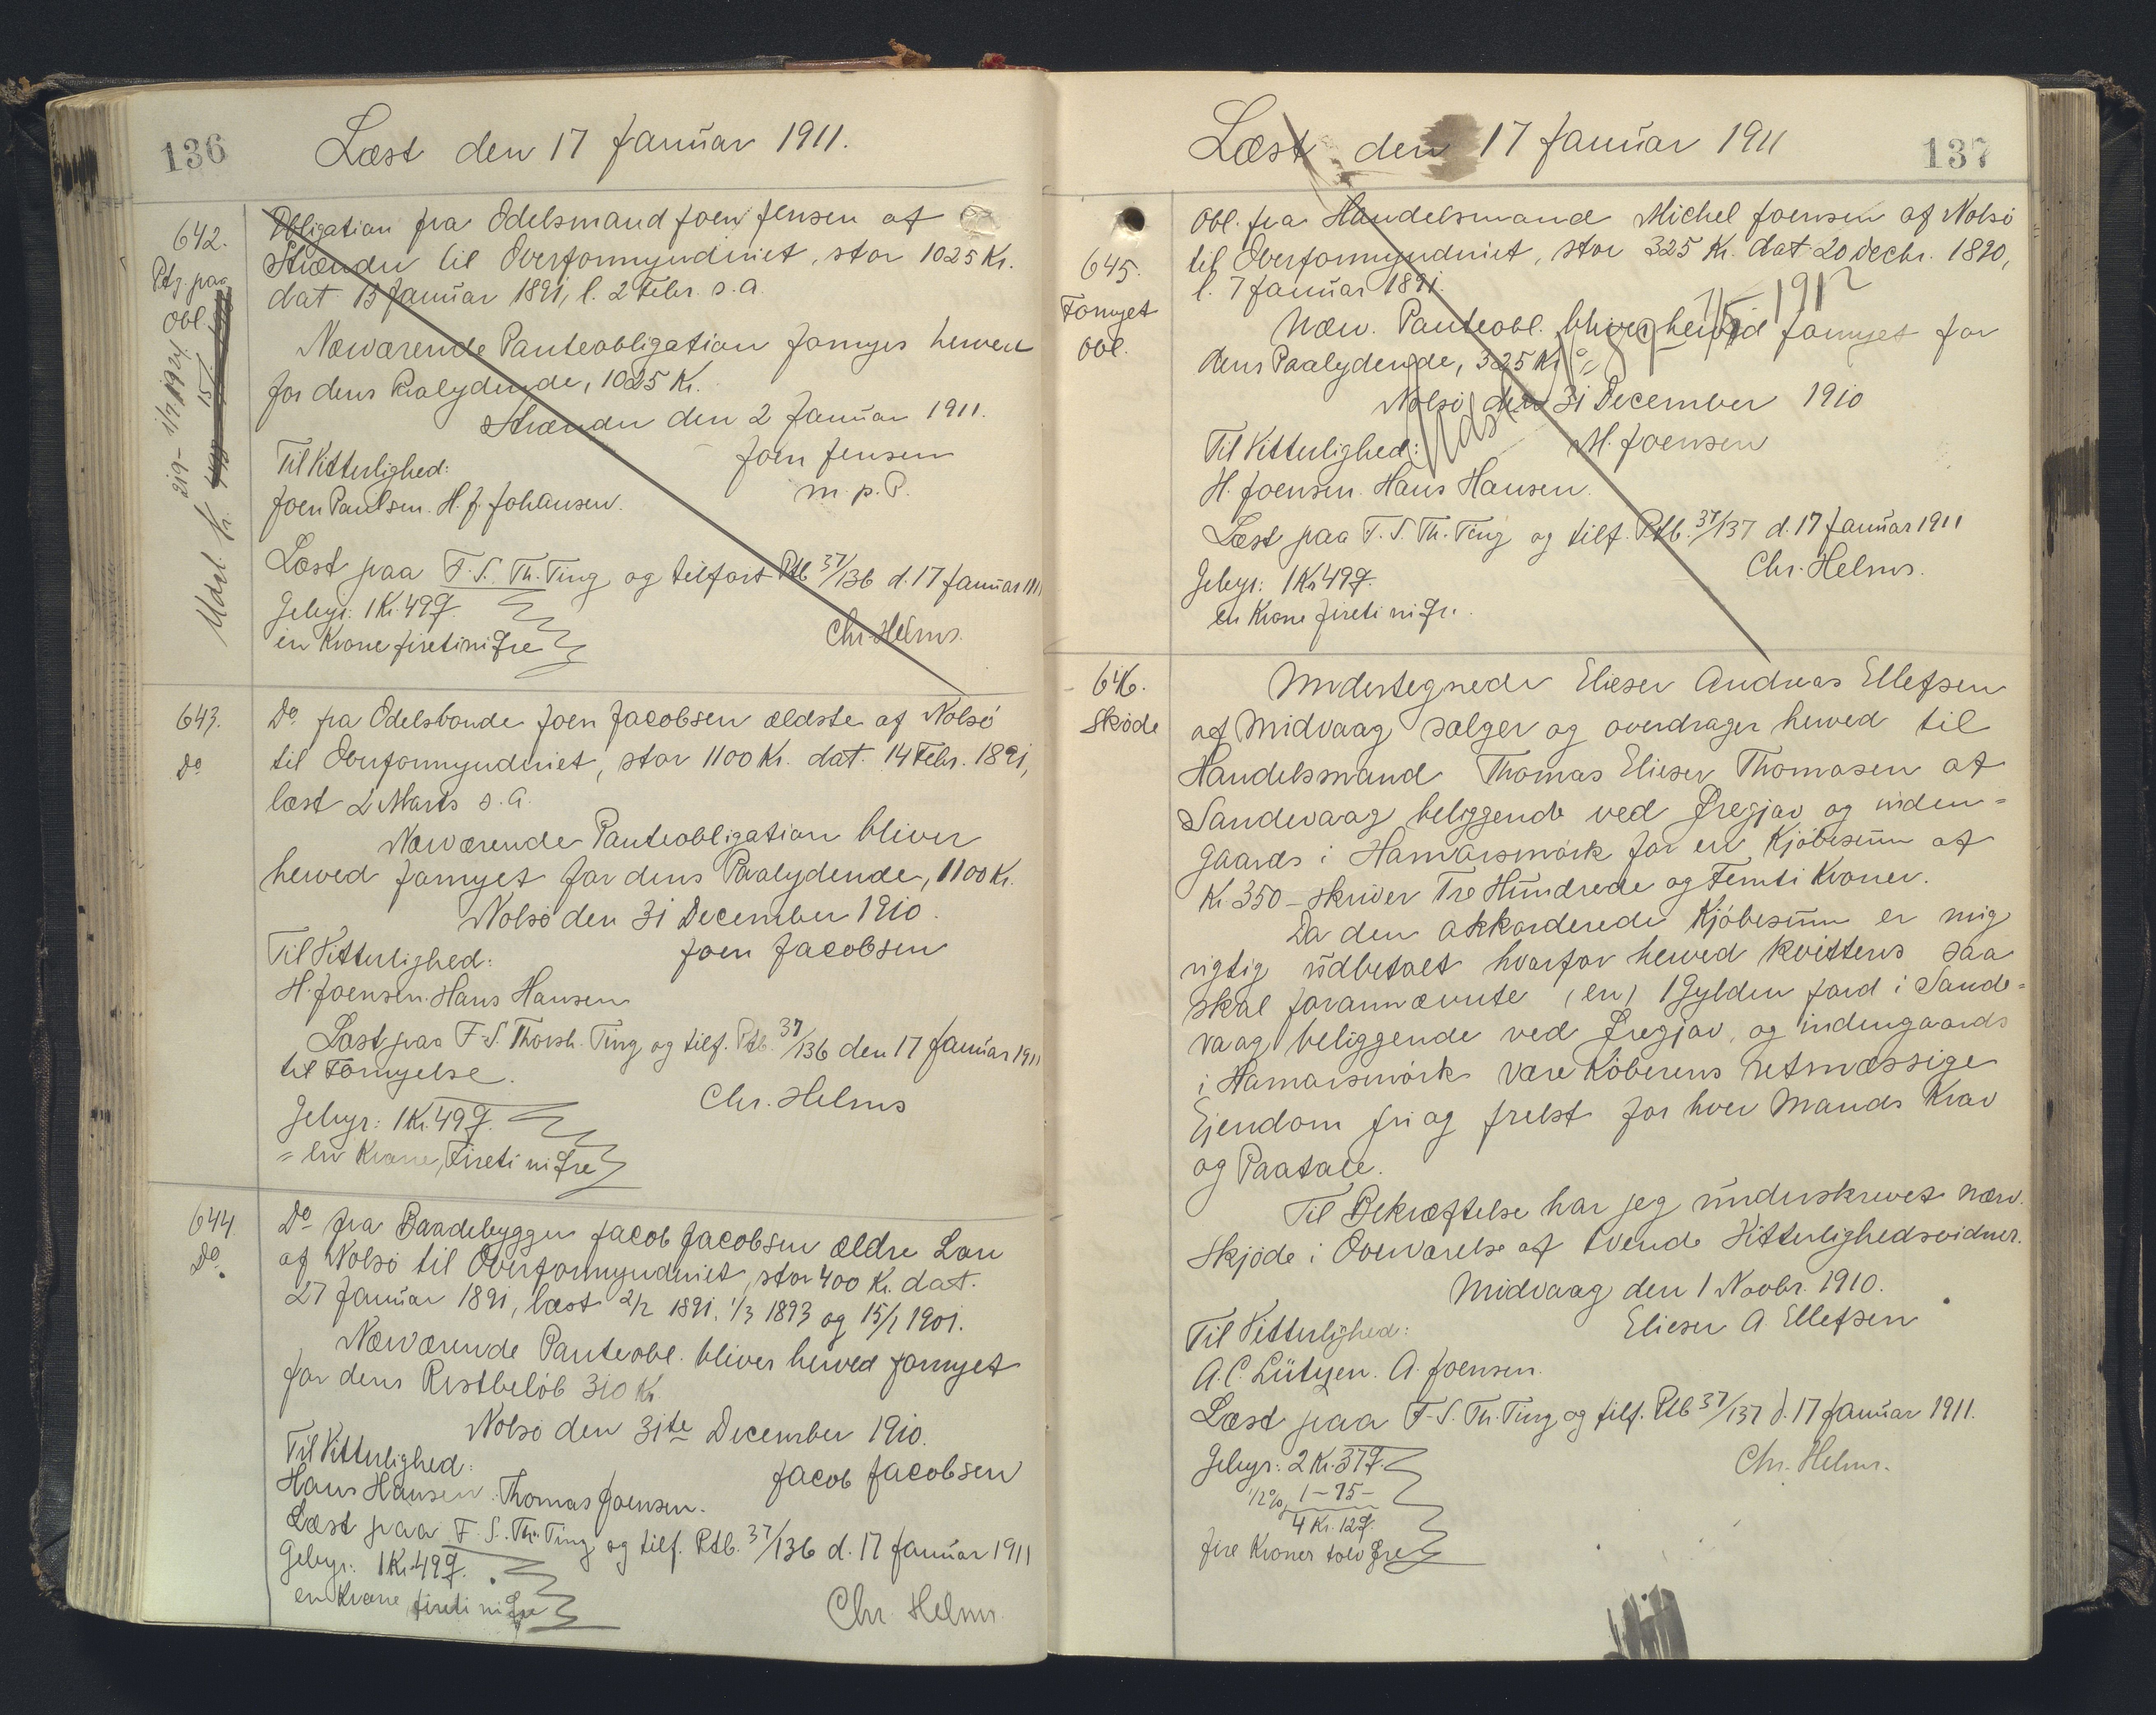 136
Læst den 17 Januar 1911.
642.
Ptg. paa
Obl.
Obligation fra Odelsmand Joen Jensen af
Strænder til Overformynderiet, stor 1025 Kr.
dat. 15 Januar 1891, l. 2 Febr. s.a.
Nærværende Panteobligation fornyes herved
for dens Paalydende, 1025 Kr.
Strænder den 2 Januar 1911.
Til Vitterlighed:
Joen Jensen
m.p.P.
Joen Paulsen. H. J. Johansen.
Læst paa F. S. Th. Ting og tilført Ptb 37/136 d. 17 Januar 1911
Gebyr: 1 Kr. 49 Ø.
en Krone firetini Øre
Chr. Helms.
643.
Do
Do fra Odelsbonde Joen Jacobsen ældste af Nolsö
til Overformynderiet, stor 1100 Kr. dat. 14 Febr. 1891,
læst 2 Marts s.a.
Nærværende Panteobligation bliver
herved fornyet for dens Paalydende, 1100 Kr.
Nolsö den 31 December 1910.
Til Vitterlighed:
Joen Jacobsen
H. Joensen. Hans Hansen
Læst paa F. S. Thorsh. Ting og tilf. Ptb. 37/136 den 17 Januar 1911
til Fornyelse.
Chr. Helms
Gebyr: 1 Kr. 49 Ø.
= en Krone, firetini Øre
644
Do.
Do fra Baadebygger Jacob Jacobsen ældre Lon
af Nolsö til Overformynderiet, stor 400 Kr. dat.
27 Januar 1891, læst 2/2 1891. 1/3 1893 og 15/1 1901.
Nærværende Panteobl. bliver herved fornyet
for dens Restbelöb 310 Kr.
Nolsö den 31te December 1910.
Til Vitterlighed:
Jacob Jacobsen
Hans Hansen. Thomas Joensen.
Læst paa F. S. Th. Ting og tilf. Ptb. 37/136 d. 17 Januar 1911
Gebyr: 1 Kr. 49 Ø.
en Krone firetini Øre
Chr. Helms.
137
Læst den 17 Januar 1911
645.
Fornyet
Obl.
Obl. fra Handelsmand Michel Joensen af Nolsö
til Overformynderiet, stor 325 Kr. dat. 20 Decbr. 1890,
l. 7 Januar 1891.
Nærv. Panteobl. bliver herved fornyet for
dens Paalydende, 325 Kr.
Nolsö den 31 December 1910
Til Vitterlighed:
M. Joensen
H. Joensen. Hans Hansen.
Læst paa F. S. Th. Ting og tilf. Ptb. 37/137 d. 17 Januar 1911
Chr. Helms.
Gebyr: 1 Kr 49 Ø.
en Krone firetini Øre.
646.
Sköde
Undertegnede Elieser Andreas Ellefsen
af Midvaag sælger og overdrager herved til
Handelsmand Thomas Elieser Thomasen af
Sandevaag beliggende ved Øregjov og inden=
gaards i Hamarsmörk for en Kjöbesum af
Kr. 350 - skriver Tre Hundrede og Femti Kroner.
Da den akkorderede Kjöbesum er mig
rigtig udbetalt hvorfor herved kvitteres saa
skal forannævnte (en) 1 Gylden jord i Sande=
vaag beliggende ved Øregjov, og indengaards
i Hamarsmörk være Köberens retmæssige
Ejendom fri og frelst for hver Mands Krav
og Paatale.
Til Bekræftelse har jeg underskrevet nærv.
Skjöde i Overværelse af tvende Vitterlighedsvidner.
Midvaag den 1 Novbr. 1910.
Til Vitterlighed:
Elieser A. Ellefsen
A. C. Lützen. A. Joensen.
Læst paa F. S. Th. Ting og tilf. Ptb 37/137 d. 17 Januar 1911.
Gebyr: 2 Kr. 37 Ø.
Chr. Helms.
1/2% 1 - 75 -
4 Kr. 12 Ø.
fire Kroner tolv Øre